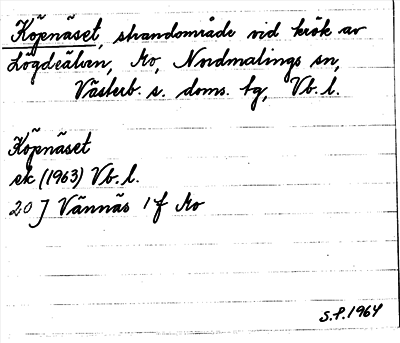 Köpnäset, strandområde vid krök av
Lögdeälven, Mo, Nordmalings sn,
Västerb. s. doms. tg, Vb. l.
Köpnäset
ek (1963) Vb. l.
20 J Vännäs 1 f Mo
S.P. 1964